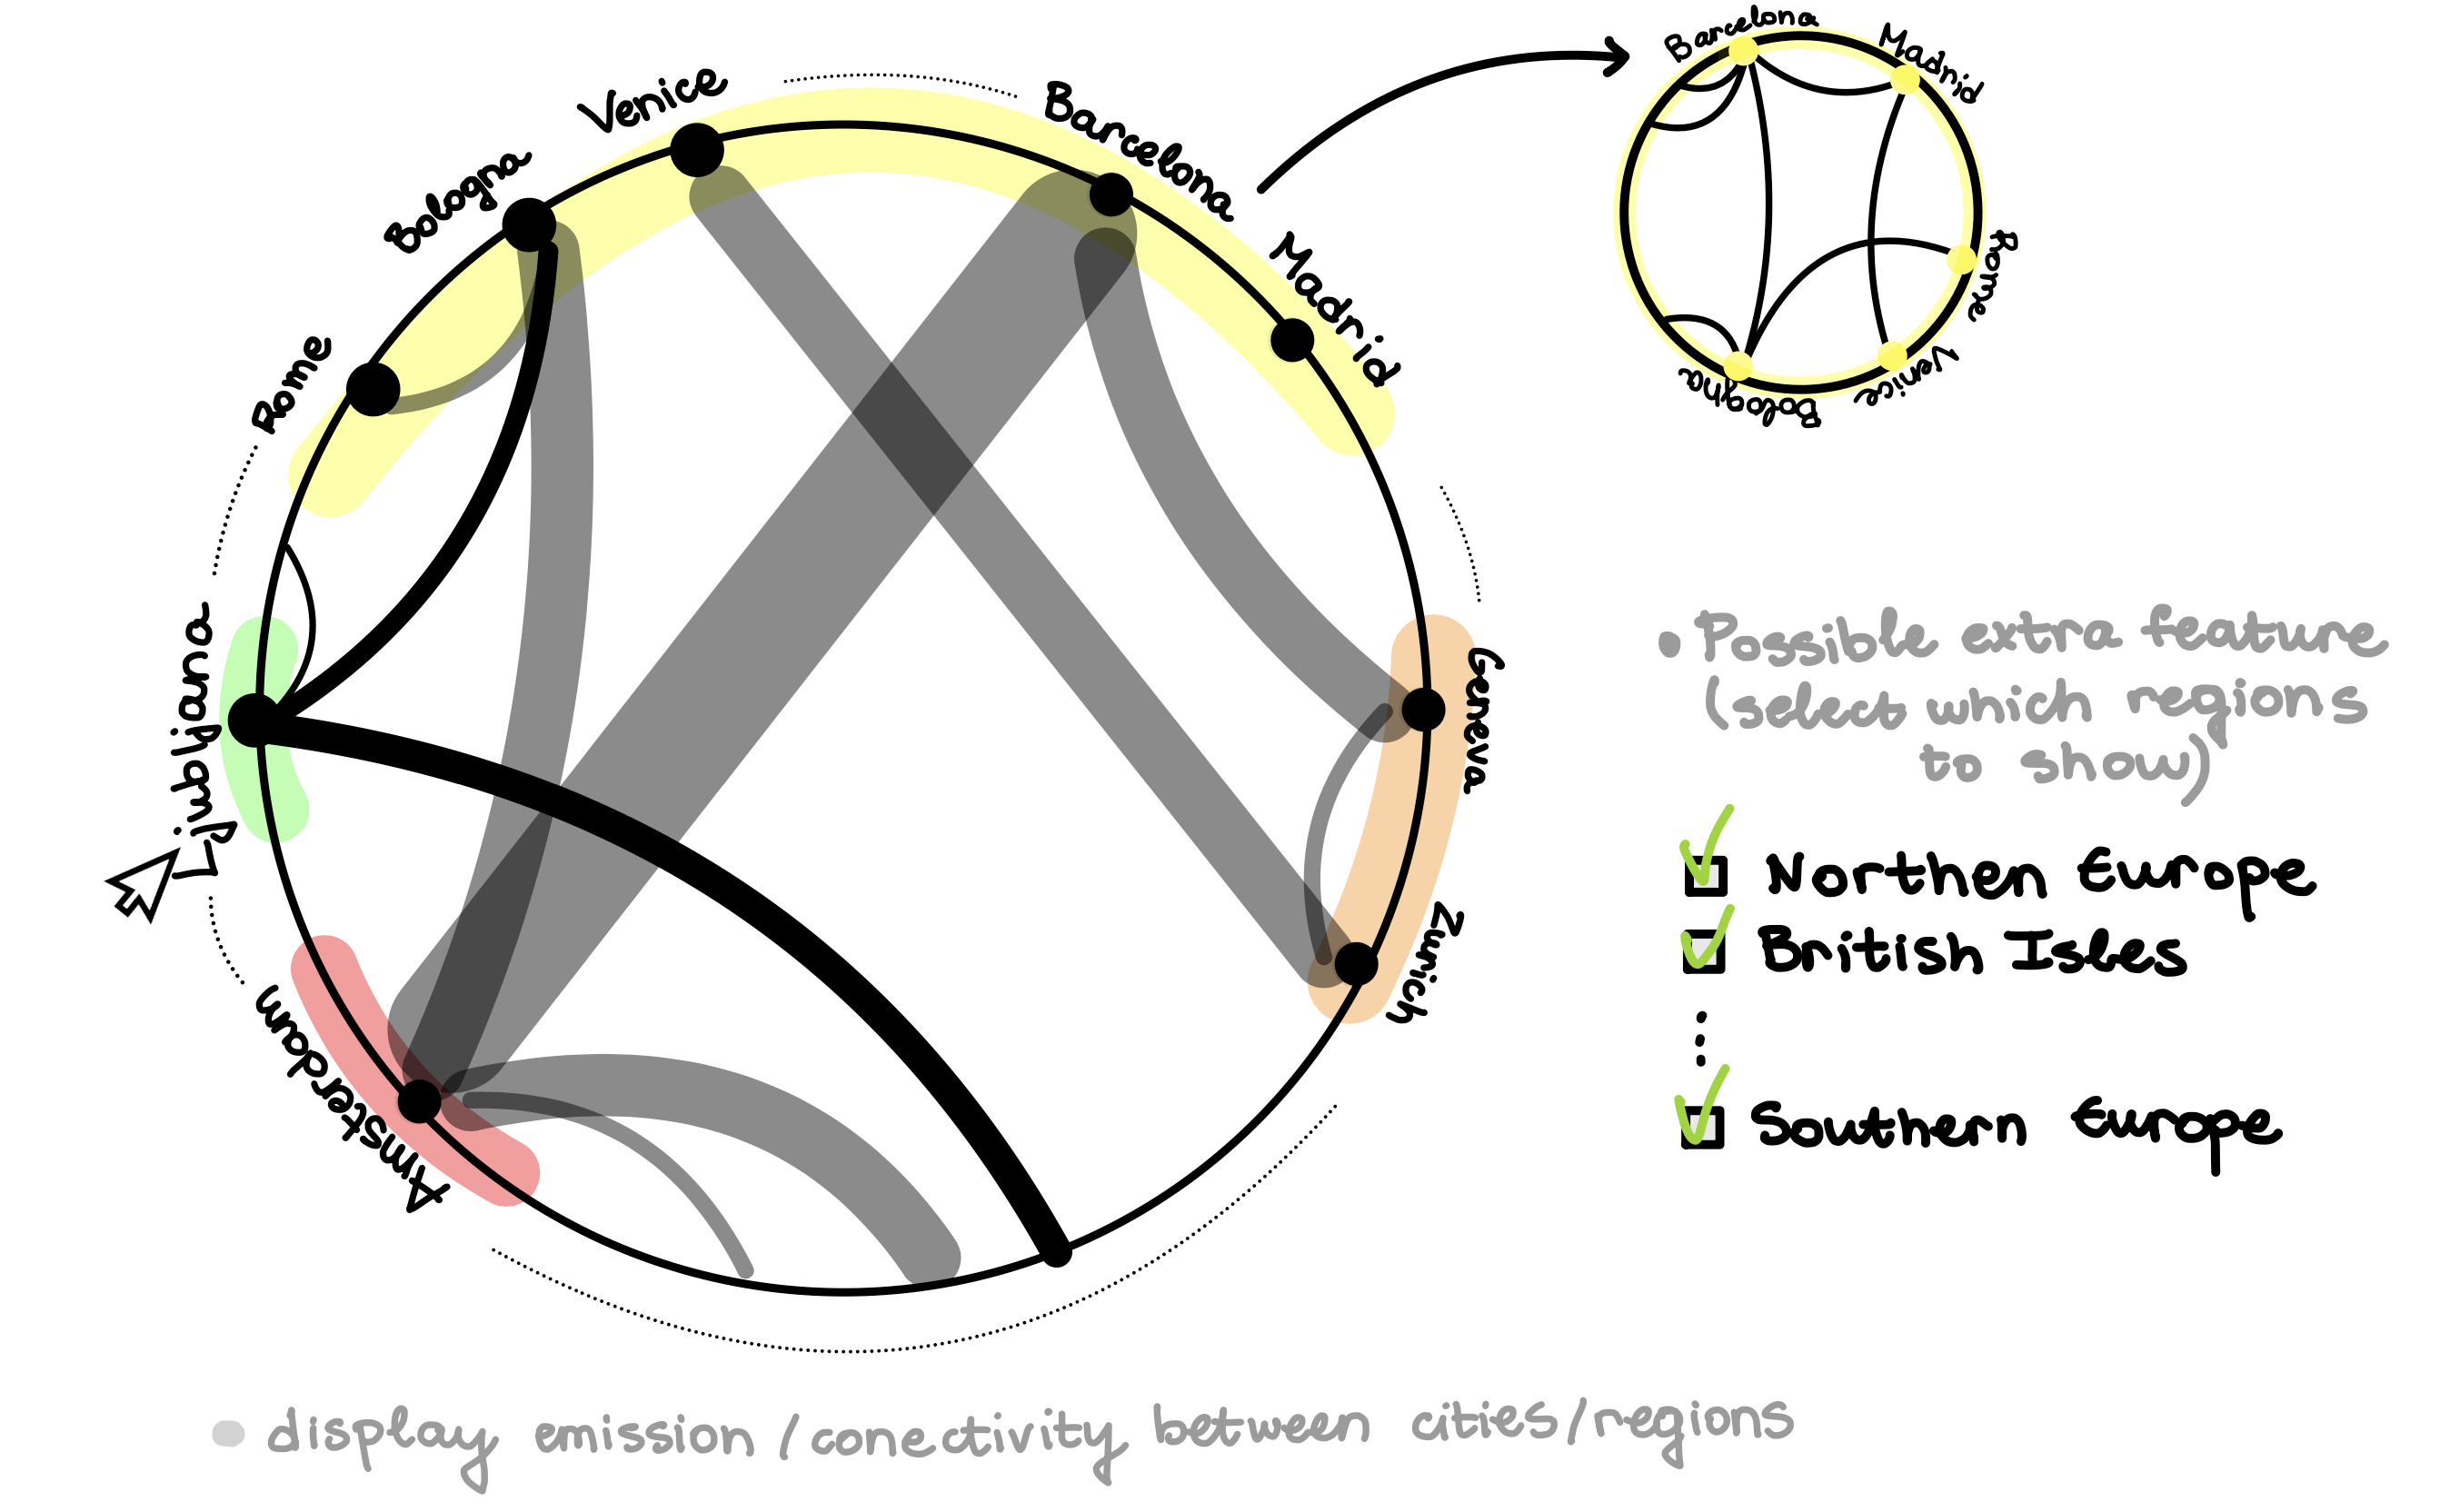 Venice
Bologna
Barcelona
Madrid
Rome
Ljubljana
Geneva
Zurich
Amsterdam
Barcelona
Madrid
Rome
Venice
Bologna
• Possible extra feature
(select wich regions
to show)
Northen Europe
British Isles
Southern Europe
• display emission/conectivity between cities/regions